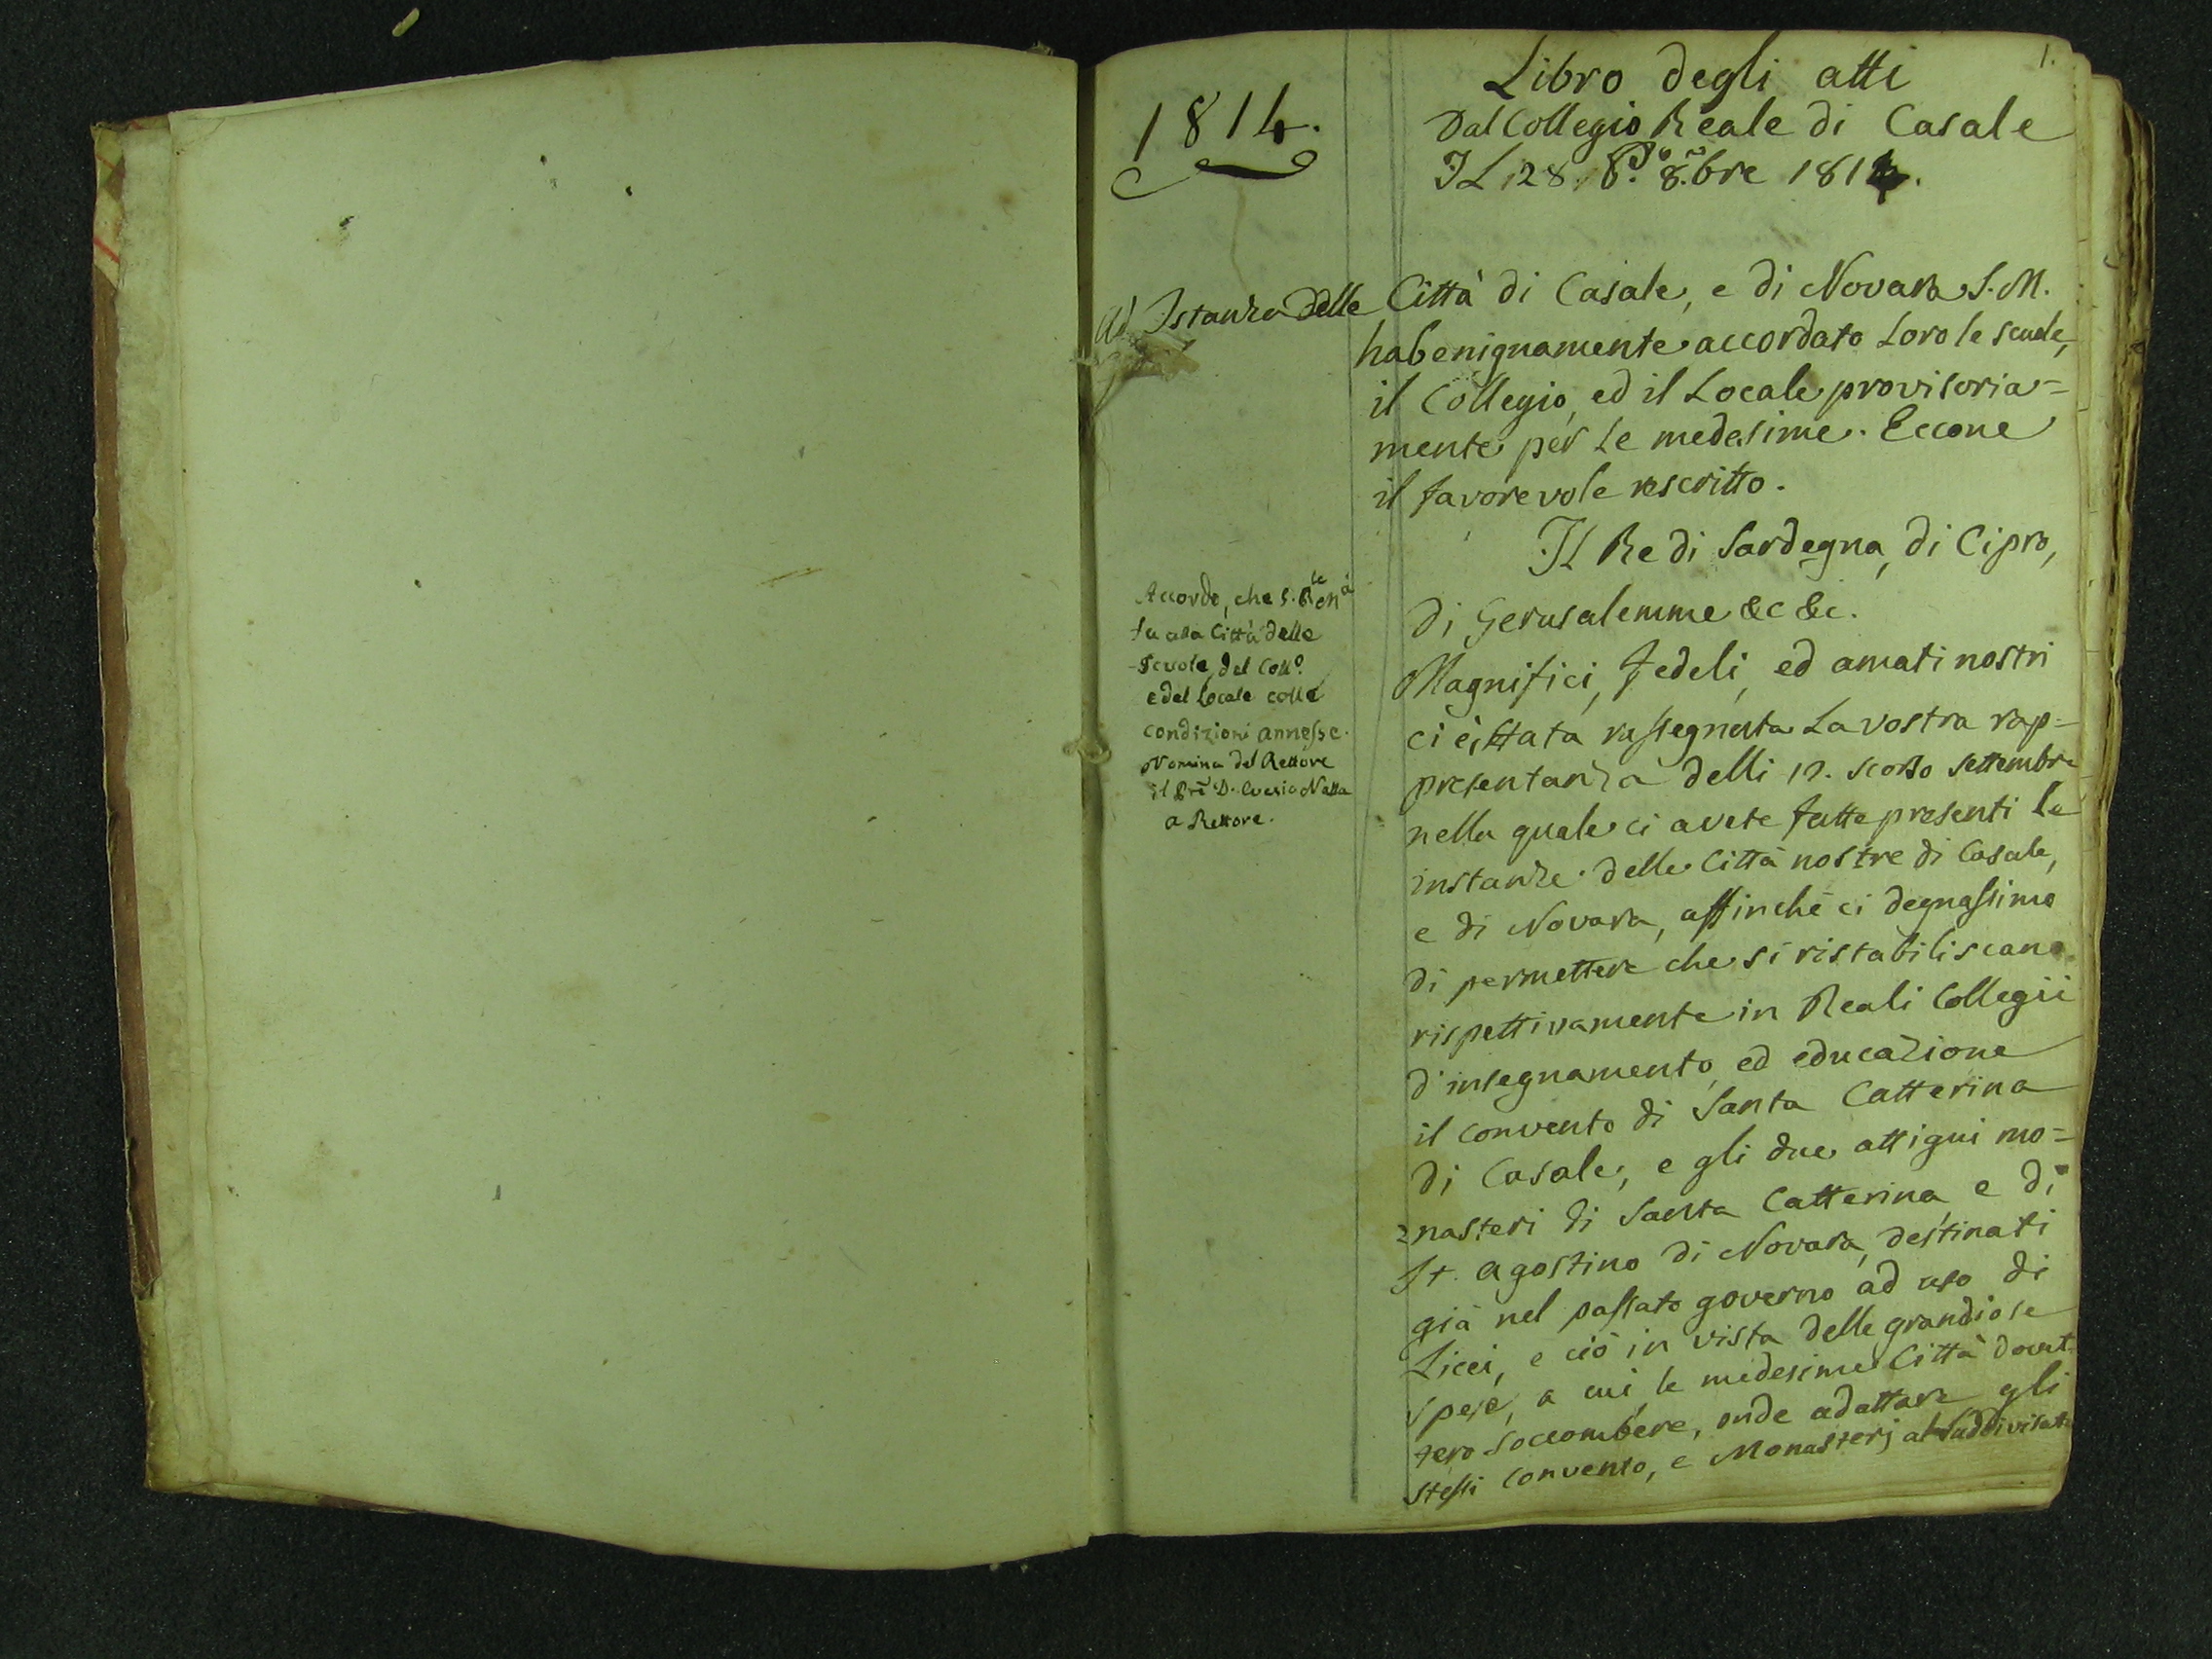 1.
1814.
Libro degli atti
Dal Collegio Reale di Casale
Il 28. 8.bre 1814.
Ad Istanza delle Città di Casale, e di Novara S. M.
ha benignamente accordato Loro le scuole,
il Collegio, ed il Locale provisoria=
mente per le medesime. Eccone
il favorevole rescritto.
Il Re di Sardegna, di Cipro,
di Gerusalemme &c &c.
Magnifici, Fedeli, ed amati nostri
ci è stata rassegnata la vostra rap=
presentanza delli 12. scorso settembre
nella quale ci avete fatte presenti le
instanze delle Città nostre di Casale,
e di Novara, affinchè ci degnassimo
di permettere che si ristabiliscano
rispettivamente in Reali Collegii
d'insegnamento, ed educazione
il convento di Santa Catterina
di Casale, e gli due attigui mo=
nasteri di Santa Catterina, e di
St. Agostino di Novara, destinati
già nel passato governo ad uso di
Licei, e ciò in vista delle grandiose
spese, a cui le medesime Città dovet
tero soccombere, onde adattare gli
stessi convento, e Monasterj al suddivisato
Accordo, che S. R.le M.à
fa alla Città delle
Scuole, del Coll.o
e del Locale colle
condizioni annesse.
Nomina del Rettore
il D. Natta
a Rettore.